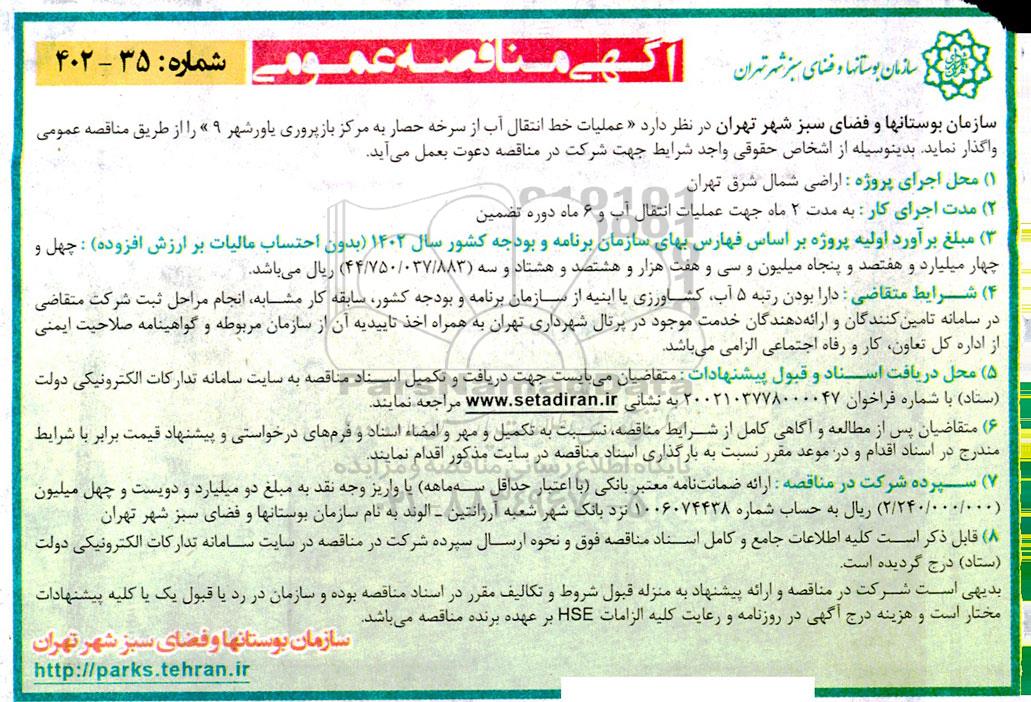 سازمان بوستانها و فضای سبز شهر تهران
آگهی مناقصه عمومی
شماره: ۳۵ - ۴۰۲
سازمان بوستانها و فضای سبز شهر تهران در نظر دارد «عملیات خط انتقال آب از سرخه حصار به مرکز بازپروری یاورشهر ۹» را از طریق مناقصه عمومی
واگذار نماید. بدینوسیله از اشخاص حقوقی واجد شرایط جهت شرکت در مناقصه دعوت بعمل می‌آید.
۱) محل اجرای پروژه : اراضی شمال شرق تهران
۲) مدت اجرای کار : به مدت ۲ ماه جهت عملیات انتقال آب و ۶ ماه دوره تضمین
۳) مبلغ برآورد اولیه پروژه بر اساس فهارس بهای سازمان برنامه و بودجه کشور سال ۱۴۰۲ (بدون احتساب مالیات بر ارزش افزوده) : چهل و
چهار میلیارد و هفتصد و پنجاه میلیون و سی و هفت هزار و هشتصد و هشتاد و سه (۴۴/۷۵۰/۰۳۷/۸۸۳) ریال می‌باشد.
۴) شرایط متقاضی : دارا بودن رتبه ۵ آب، کشاورزی یا ابنیه از سازمان برنامه و بودجه کشور، سابقه کار مشابه، انجام مراحل ثبت شرکت متقاضی
در سامانه تامین‌کنندگان و ارائه‌دهندگان خدمت موجود در پرتال شهرداری تهران به همراه اخذ تاییدیه آن از سازمان مربوطه و گواهینامه صلاحیت ایمنی
از اداره کل تعاون، کار و رفاه اجتماعی الزامی می‌باشد.
۵) محل دریافت اسناد و قبول پیشنهادات : متقاضیان می‌بایست جهت دریافت و تکمیل اسناد مناقصه به سایت سامانه تدارکات الکترونیکی دولت
(ستاد) با شماره فراخوان ۲۰۰۲۱۰۳۷۷۸۰۰۰۰۴۷ به نشانی www.setadiran.ir مراجعه نمایند.
۶) متقاضیان پس از مطالعه و آگاهی کامل از شرایط مناقصه، نسبت به تکمیل و مهر و امضاء اسناد و فرم‌های درخواستی و پیشنهاد قیمت برابر با شرایط
مندرج در اسناد اقدام و در موعد مقرر نسبت به بارگذاری اسناد مناقصه در سایت مذکور اقدام نمایند.
۷) سپرده شرکت در مناقصه : ارائه ضمانت‌نامه معتبر بانکی (با اعتبار حداقل سه‌ماهه) یا واریز وجه نقد به مبلغ دو میلیارد و دویست و چهل میلیون
(۲/۲۴۰/۰۰۰/۰۰۰) ریال به حساب شماره ۱۰۰۶۰۷۴۴۳۸ نزد بانک شهر شعبه آرژانتین ـ الوند به نام سازمان بوستانها و فضای سبز شهر تهران
۸) قابل ذکر است کلیه اطلاعات جامع و کامل اسناد مناقصه فوق و نحوه ارسال سپرده شرکت در مناقصه در سایت سامانه تدارکات الکترونیکی دولت
(ستاد) درج گردیده است.
بدیهی است شرکت در مناقصه و ارائه پیشنهاد به منزله قبول شروط و تکالیف مقرر در اسناد مناقصه بوده و سازمان در رد یا قبول یک یا کلیه پیشنهادات
مختار است و هزینه درج آگهی در روزنامه و رعایت کلیه الزامات HSE بر عهده برنده مناقصه می‌باشد.
سازمان بوستانها و فضای سبز شهر تهران
http://parks.tehran.ir